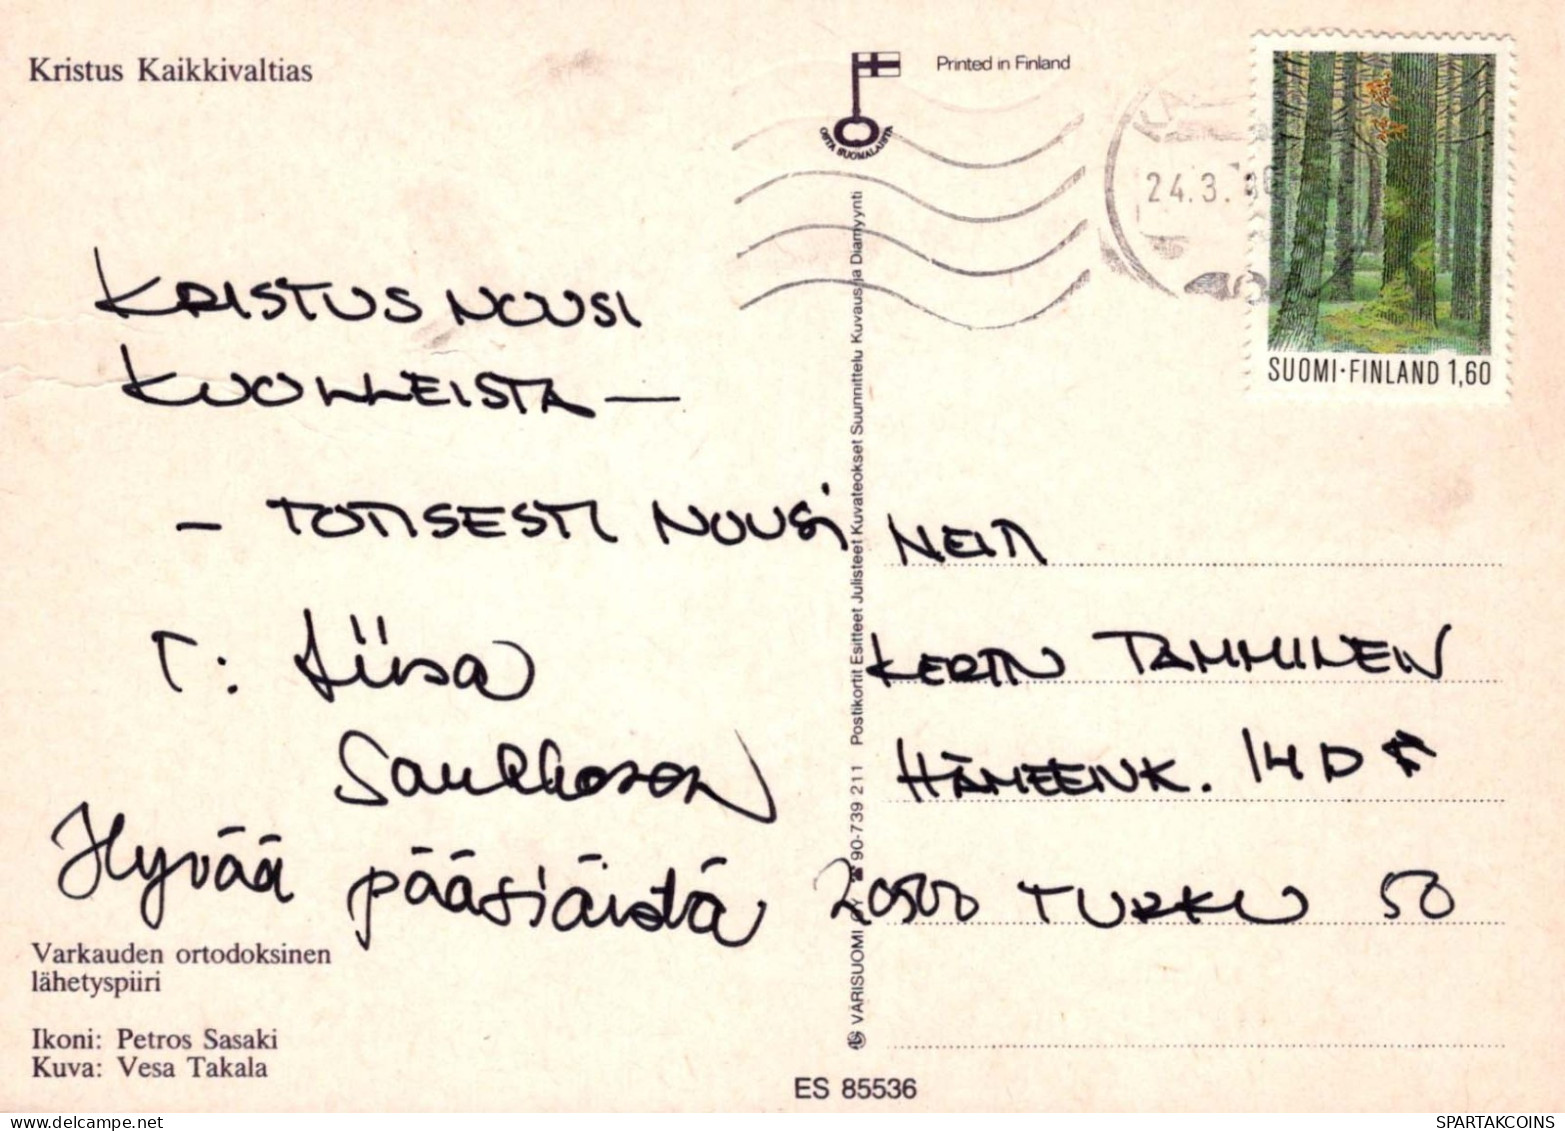 Kristus Kaikkivaltias
OSTA SUOMALAISTA
Printed in Finland
24.3.
SUOMI·FINLAND 1,60
KRISTUS NOUSI
KUOLLEISTA —
— TOTISESTI NOUSI
T: Liisa
Hyvää pääsiäistä
Varkauden ortodoksinen
lähetyspiiri
Ikoni: Petros Sasaki
Kuva: Vesa Takala
VÄRISUOMI OY ☎ 90-739 211 Postikortit Esitteet Julisteet Kuvateokset Suunnittelu Kuvaus ja Diamyynti
NEITI
TAMMINEN
HÄMEENK. 14 D
20500 TURKU 50
ES 85536
SPARTAKCOINS